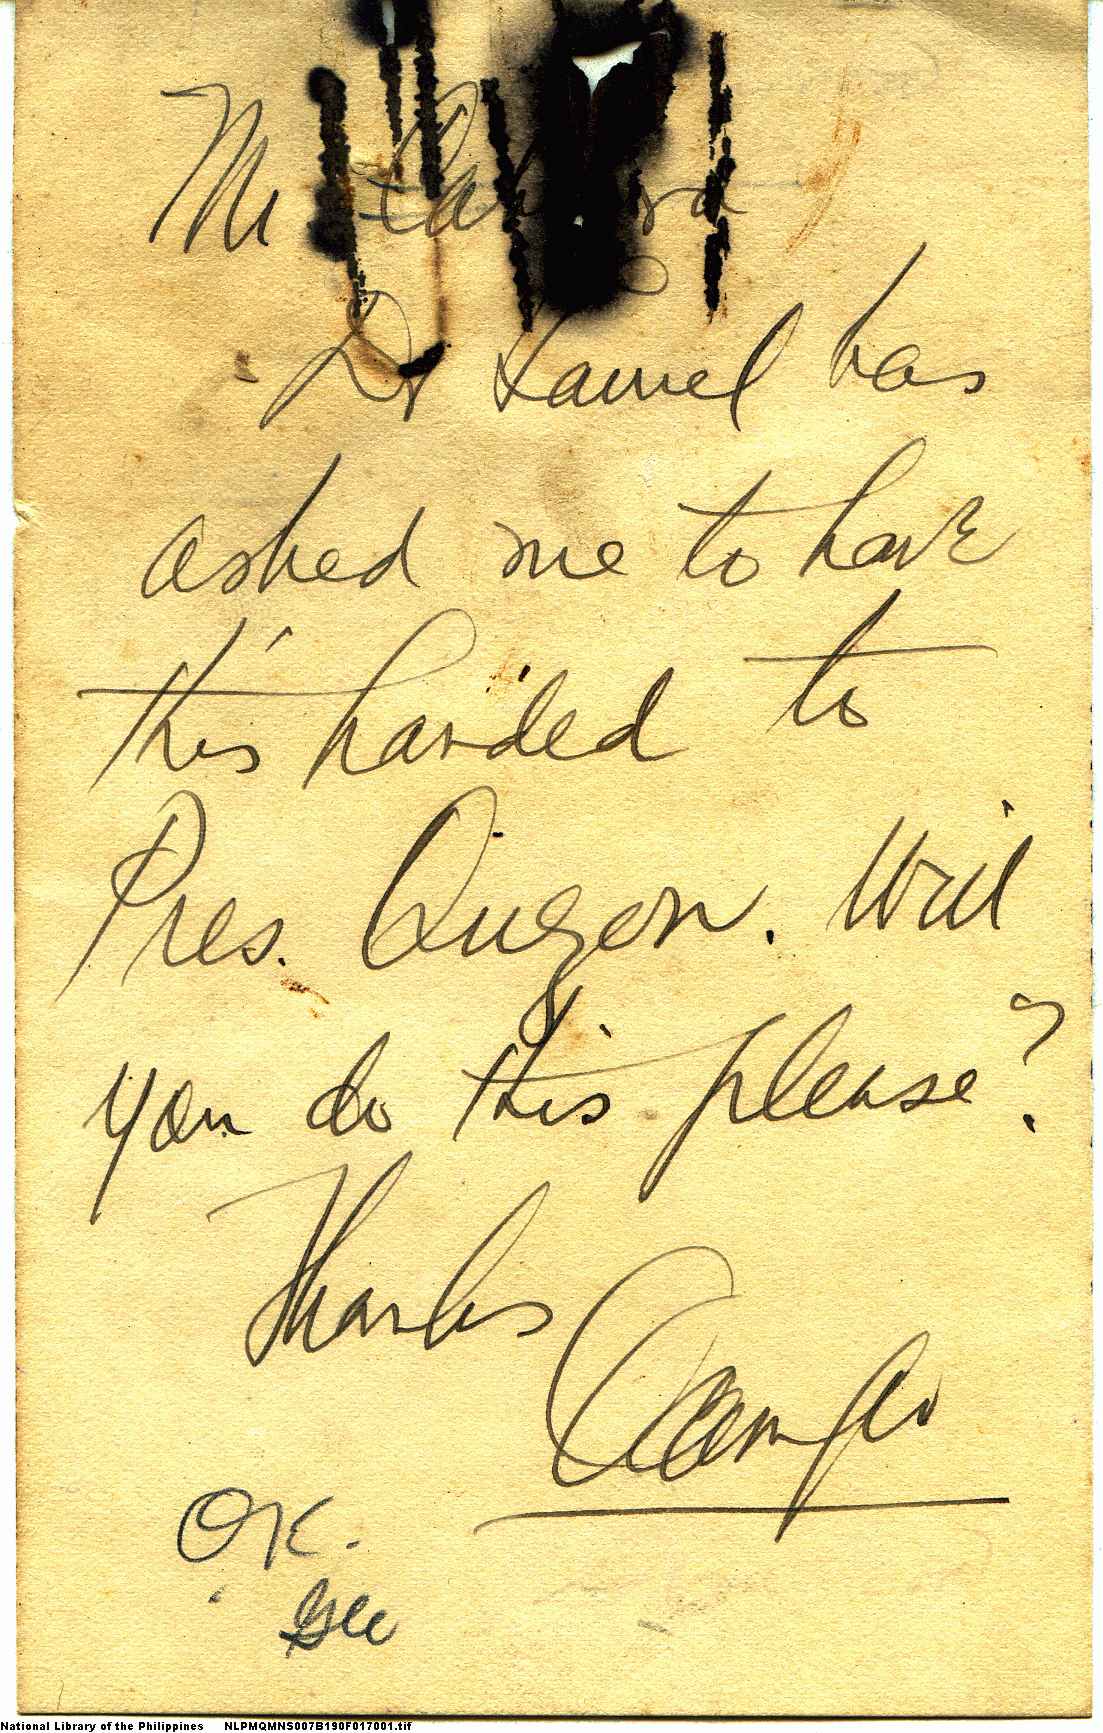 Mr
Dr Laurel has
asked me to have
this handed to
Pres. Quezon. Will
you do this please?
Thanks
OK.
National Library of the Philippines NLPMQMNS007B190F017001.tif